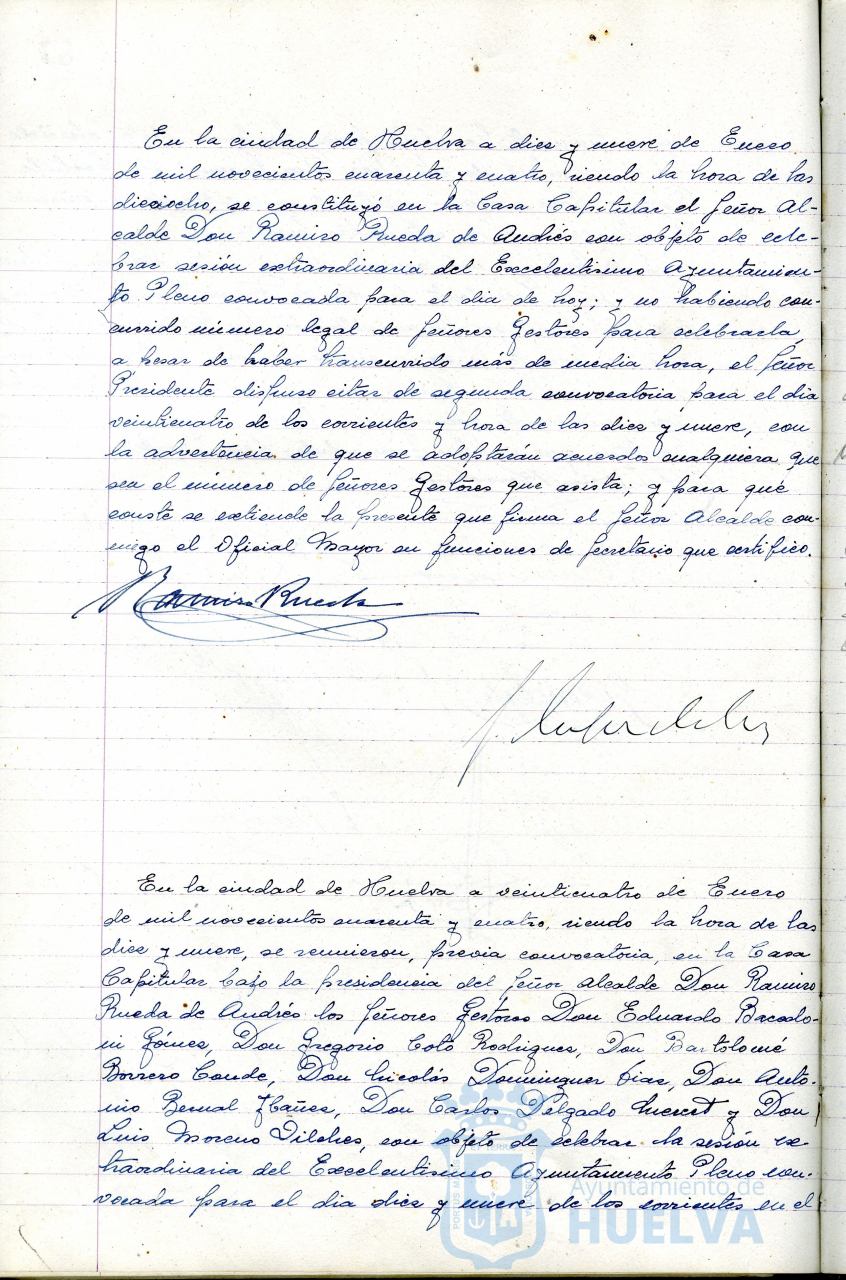 En la ciudad de Huelva a diez y nueve de Enero
de mil novecientos cuarenta y cuatro, siendo la hora de las
dieciocho, se constituyó en la Casa Capitular el Señor Al-
calde Don Ramiro Rueda de Andrés con objeto de cele-
brar sesión extraordinaria del Excelentisimo Ayuntamien-
to Pleno convocada para el dia de hoy; y no habiendo con-
currido número legal de Señores Gestores para celebrarla,
a pesar de haber transcurrido más de media hora, el Señor
Presidente dispuso citar de segunda convocatoria para el dia
veinticuatro de los corrientes y hora de las diez y nueve, con
la advertencia de que se adoptarán acuerdos cualquiera que
sea el número de Señores Gestores que asista; y para que
conste se extiende la presente que firma el Señor Alcalde con-
migo el Oficial Mayor en funciones de Secretario que certifico.
Ramiro Rueda
En la ciudad de Huelva a veinticuatro de Enero
de mil novecientos cuarenta y cuatro, siendo la hora de las
diez y nueve, se reunieron, previa convocatoria, en la Casa
Capitular bajo la presidencia del Señor Alcalde Don Ramiro
Rueda de Andrés los Señores Gestores Don Eduardo
Gómez, Don Gregorio Coto Rodriguez, Don Bartolomé
Borrero Conde, Don Nicolás Dominguez Diaz, Don Anto-
nio Bernal Ibañez, Don Carlos Delgado y Don
Luis Moreno Vilches, con objeto de celebrar la sesión ex-
traordinaria del Excelentisimo Ayuntamiento Pleno con-
vocada para el dia diez y nueve de los corrientes en el
Ayuntamiento de
HUELVA